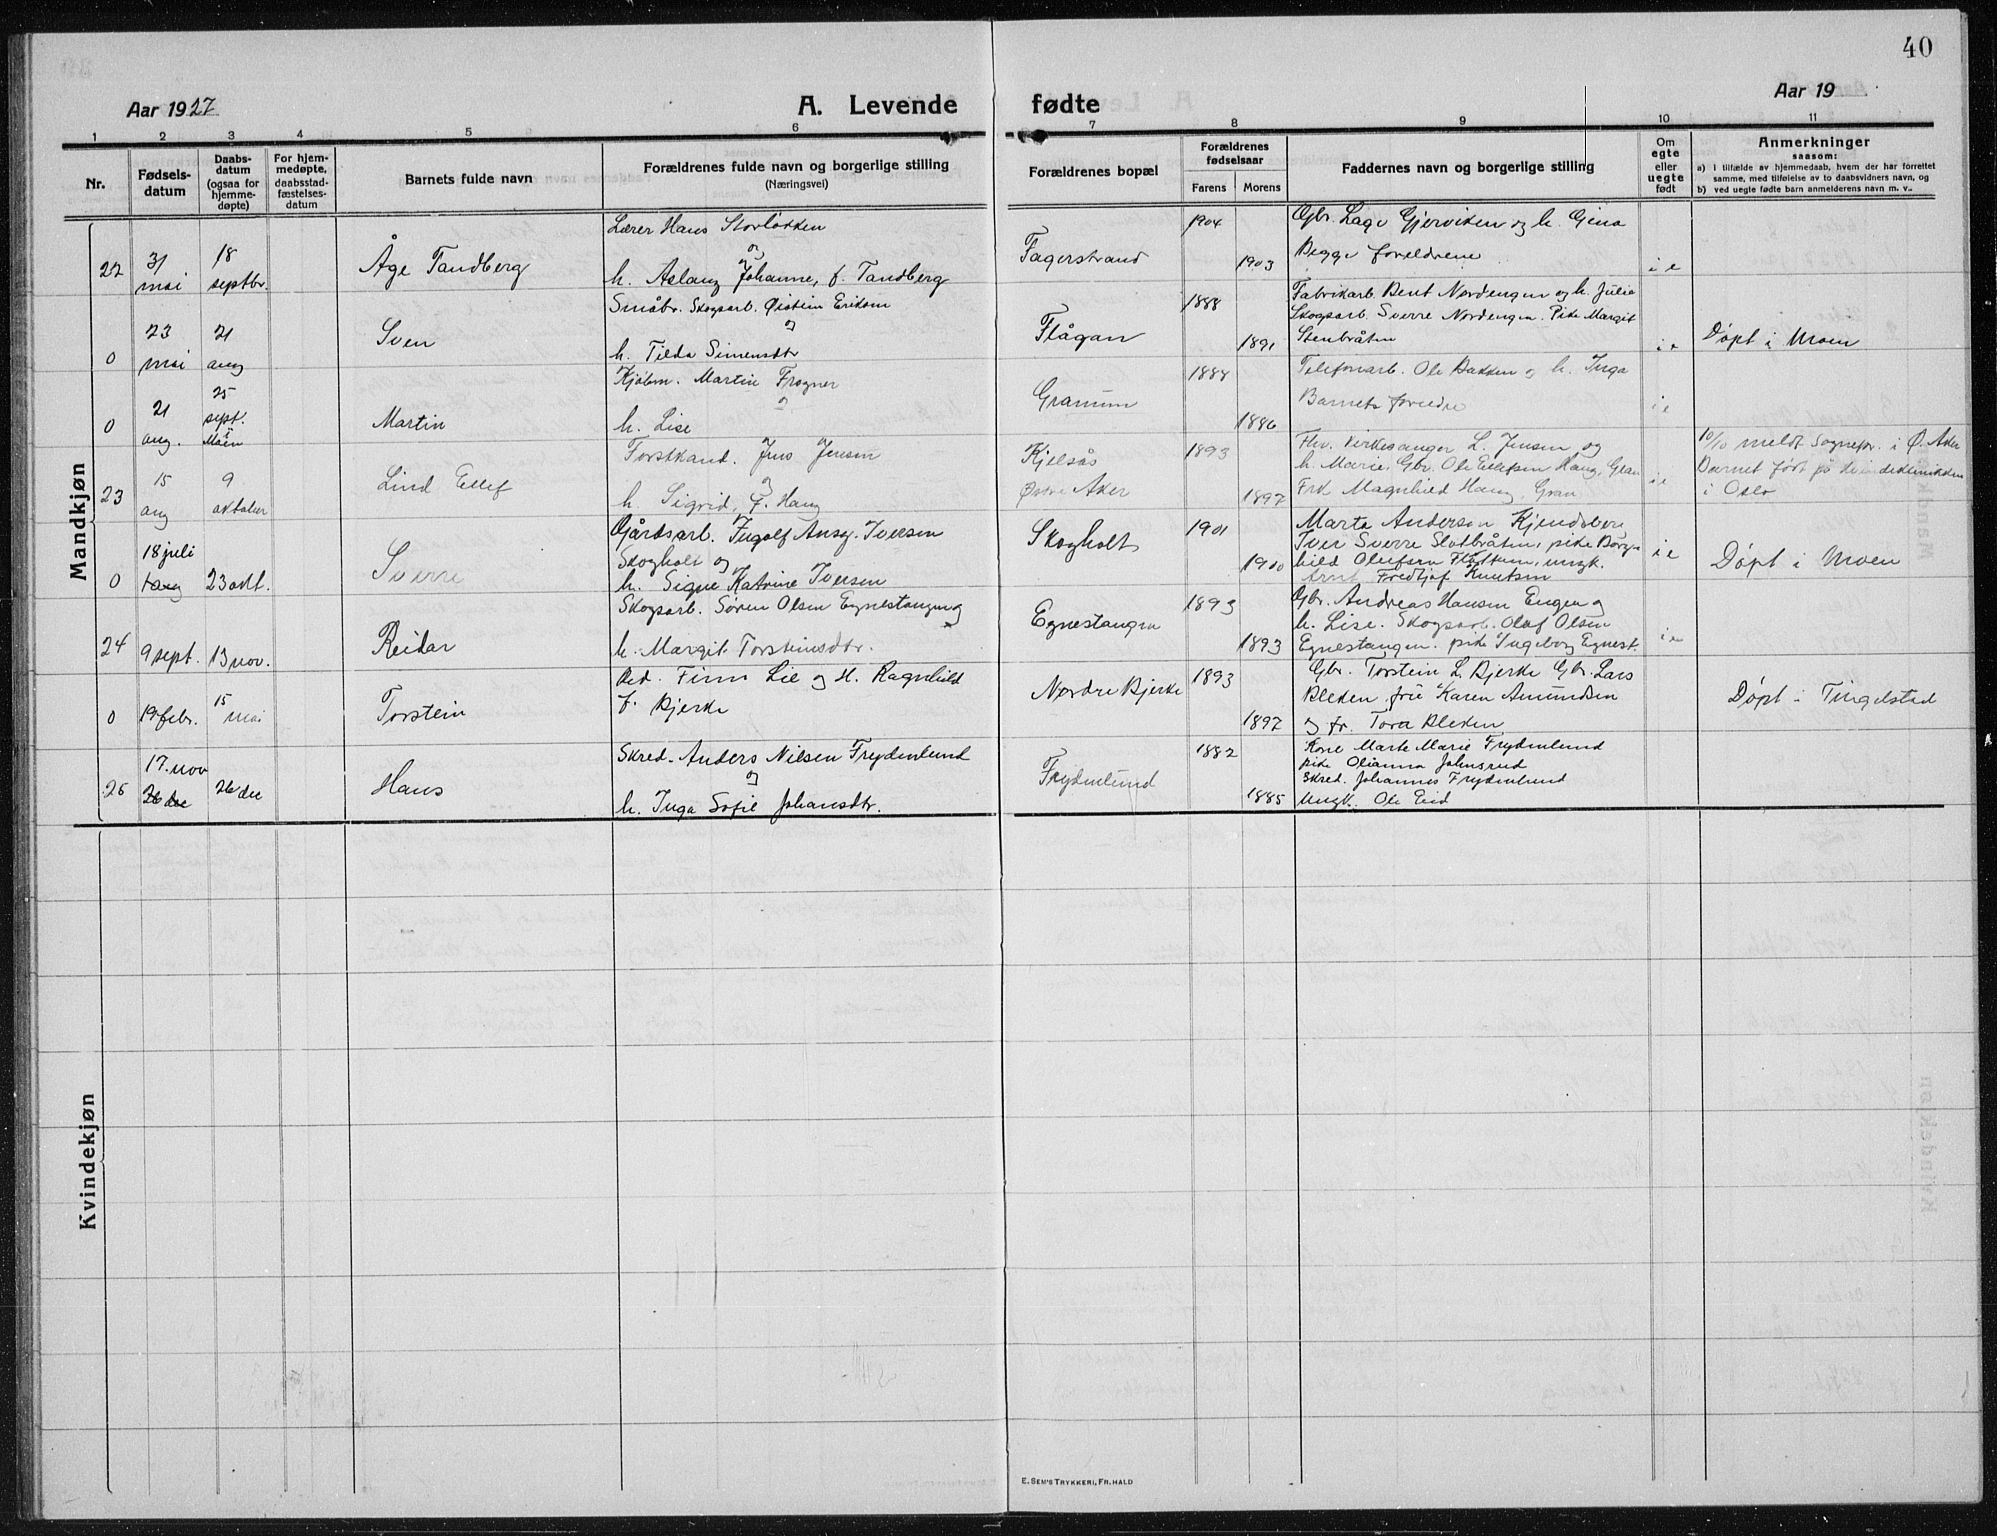 40
Aar 1927
A. Levende fødte
Aar 19
1 2 3 4 5 6 7 8 9 10 11
Nr.
Fødsels-
datum
Daabs-
datum
(ogsaa for
hjemme-
døpte)
For hjem-
medøpte,
daabsstad-
fæstelses-
datum
Barnets fulde navn
Forældrenes fulde navn og borgerlige stilling
(Næringsvei)
Forældrenes bopæl
Forældrenes
fødselsaar
Farens Morens
Faddernes navn og borgerlige stilling
Om
egte
eller
uegte
født
Anmerkninger
saasom:
a) i tilfælde av hjemmedaab, hvem der har forrettet
samme, med tilføielse av to daabsvidners navn, og
b) ved uegte fødte barn anmelderens navn m. v..
Mandkjøn
22
31
mai
18
septbr.
Åge Tandberg
Lærer Hans Storløkken
og
h. Aslaug Johanne, f. Tandberg
Fagerstrand
1904
1903
Gbr. Lage Gjerviken og h. Gina
Begge foreldrene
i e
0
23
mai
21
aug
Sven
Småbr. Skogsarb. Øistein Eriksen
og
h. Tilda Simensdtr
Flågan
1888
1891
Fabrikarb. Bent Nordengen og h. Julie
Skogsarb. Sverre Nordengen. Pike Margit
Stenbråten
i e
Døpt i Moen
0
21
aug.
25
sept.
i
Moen
Martin
Kjøbm. Martin Frogner
og
h. Lise
Granum
1888
1886
Telefonarb. Ole Bakken og h. Inga
Barnets foreldre
i e
23
15
aug
9
oktober
Lind Ellef
Forstkand. Jens Jensen
og
h Sigrid, f. Haug
Kjelsås
Østre Aker
1893
1897
Fhv. kirkesanger L. Jensen og
h. Marie, Gbr. Ole Ellefsen Haug, Gran
Frk Magnhild Haug, Gran
i e
10/10 meldt Sognepr. i Ø. Aker
Barnet født på Kvindeklinikken
i Oslo
0
18 juli
1 aug
23 okt.
Sverre
Gårdsarb. Ingolf Ansg. Iversen
Skogholt og
h. Signe Katrine Iversen
Skogholt
1901
1910
Marta Anderson Kjendsberg
Iver Sverre Slotbråten, pike Borg-
hild Olufsen Flattum, ungk.
Arnt Fredtjof Knutsen
i e
Døpt i Moen
24
9 sept.
13 nov.
Reidar
Skogsarb. Søren Olsen Egnestangen og
h. Margit Torsteinsdtr.
Egnestangen
1893
1893
Gbr. Andreas Hansen Engen og
h. Lise. Skogsarb. Olaf Olsen
Egnestangen. pike Ingeborg Egnest.
i e
0
19 febr.
15
mai
Torstein
Red. Finn Lie og H. Ragnhild
f. Bjerke
Nordre Bjerke
1893
1897
Gbr. Torstein L. Bjerke Gbr. Lars
Bleken, frue Karen Amundsen
og fr. Tora Bleken
Døpt i Tingelstad
25
17. nov
26 dec
26 dec
Hans
Skred. Anders Nilsen Frydenlund
og
h. Inga Sofie Johansdtr.
Frydenlund
1882
1885
Kone Marte Marie Frydenlund
pike Olianna Johnsrud
Skred. Johannes Frydenlund
Ungk. Ole Eid
Kvindekjøn
E. SEM'S TRYKKERI, FR.HALD